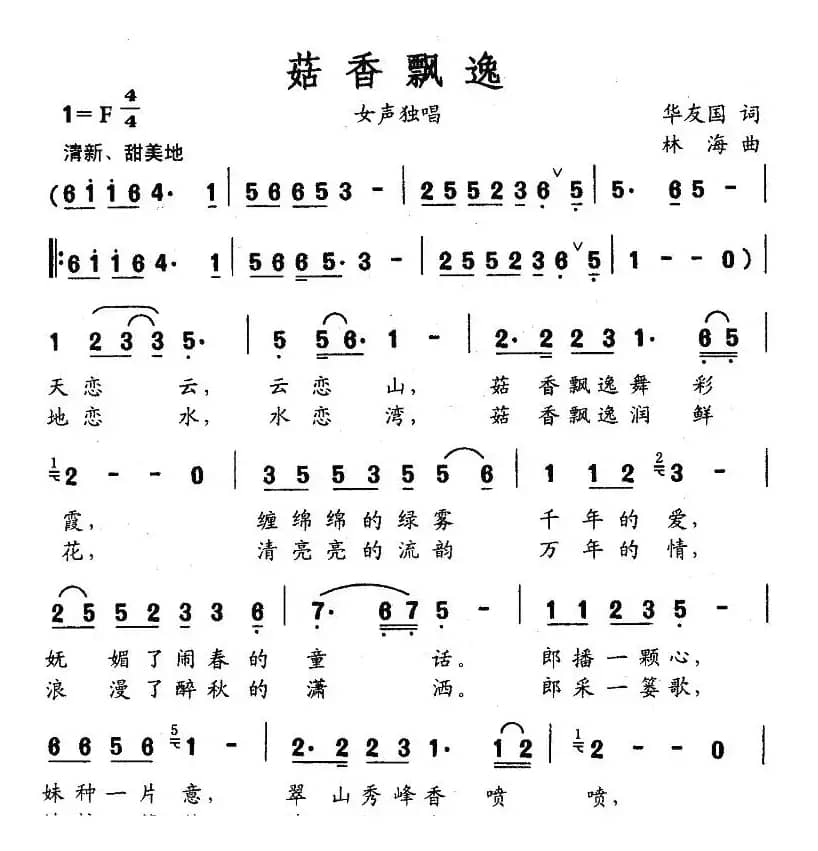 菇香飘逸
1=F 4/4
女声独唱
华友国 词
林海 曲
清新、甜美地
(6 i i 6 4· 1 | 5 6 6 5 3 - | 2 5 5 2 3 6 ∨ 5 | 5· 6 5 - |
‖: 6 i i 6 4· 1 | 5 6 6 5· 3 - | 2 5 5 2 3 6 ∨ 5 | 1 - - 0) |
1 2 3 3 5· | 5 5 6· 1 - | 2· 2 2 3 1· 6 5 |
天恋 云, 云恋 山, 菇 香飘逸舞 彩
地恋 水, 水恋 湾, 菇 香飘逸润 鲜
1 2 - - 0 | 3 5 5 3 5 5 6 | 1 1 2 2 3 - |
霞, 缠绵绵的绿雾 千年的爱,
花, 清亮亮的流韵 万年的情,
2 5 5 2 3 3 6 | 7· 6 7 5 - | 1 1 2 3 5 - |
妩 媚了闹春的 童 话。 郎播一颗心,
浪 漫了醉秋的 潇 洒。 郎采一篓歌,
6 6 5 6 5 1 - | 2· 2 2 3 1· 1 2 | 1 2 - - 0 |
妹种一片意, 翠山秀峰香 喷 喷,